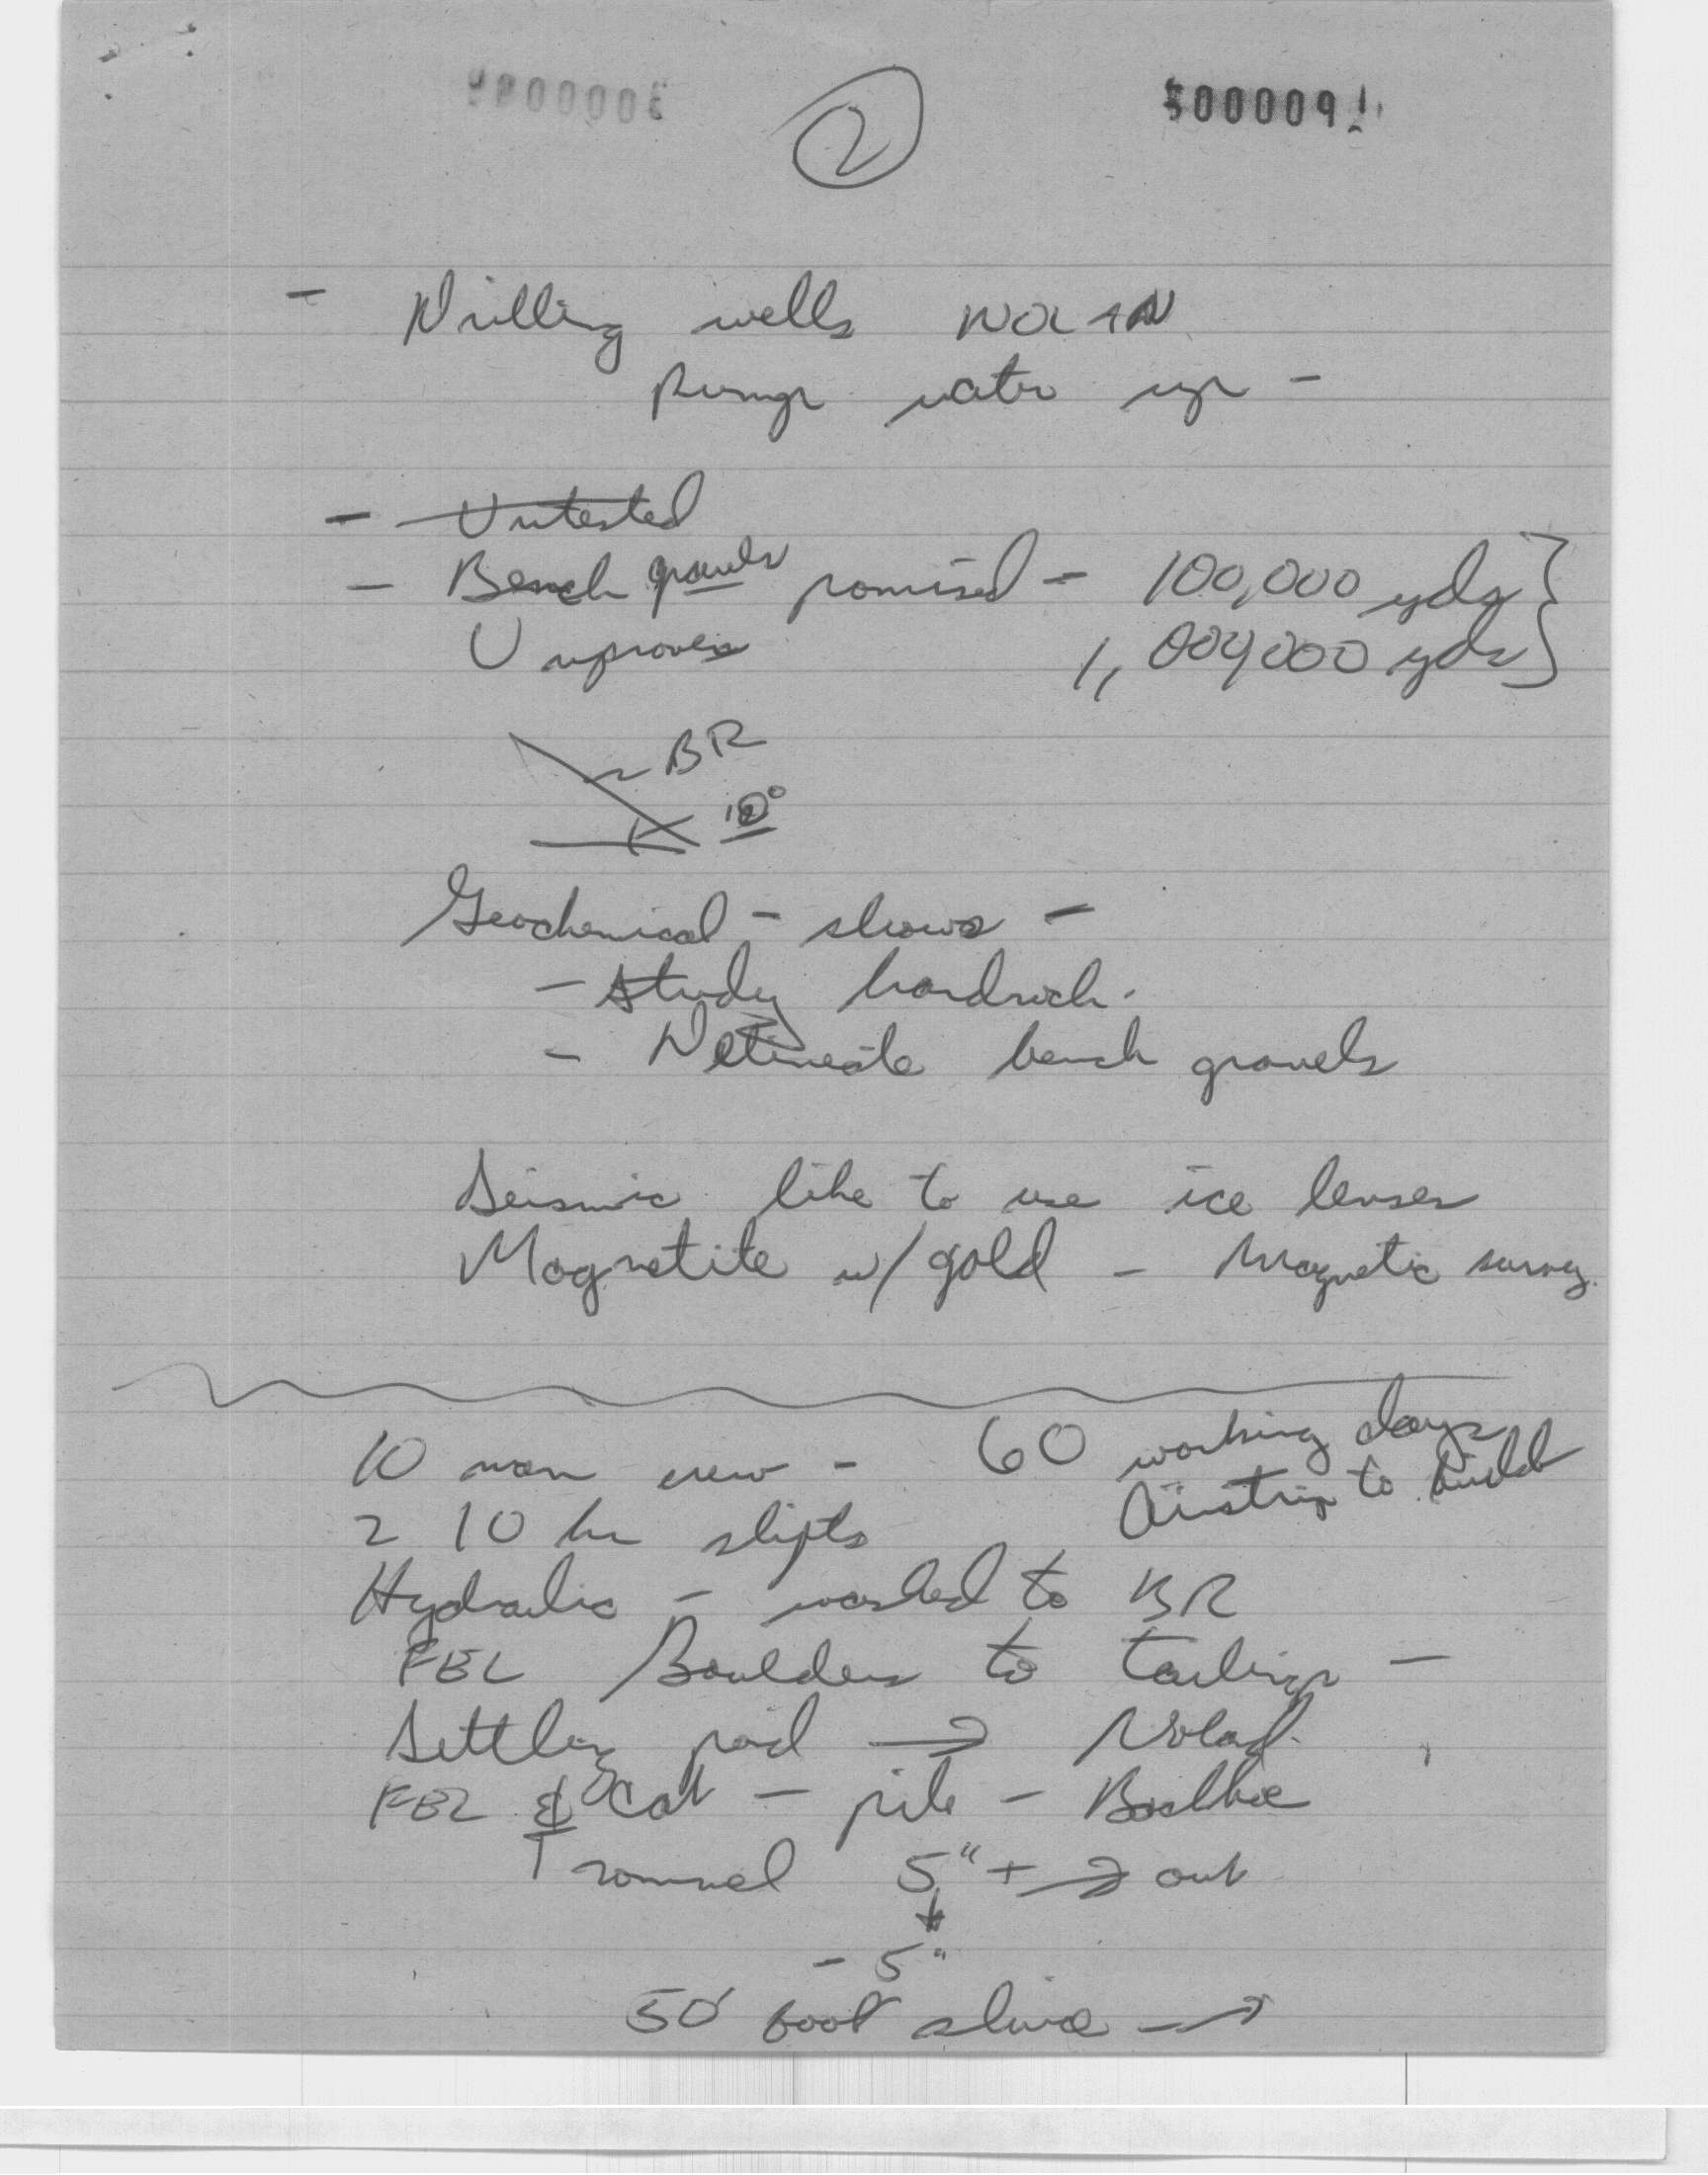 2
- Drilling wells NOLAN
Pump water up -
- Untested
- Bench gravels promised - 100,000 yds }
Unproven 1,000,000 yds }
BR
10°
Geochemical - shows -
- Study hardrock.
- Delineate bench gravels
Seismic like to use ice lenses
Magnetite w/ gold - Magnetic survey.
10 man crew - 60 working days
Airstrip to build
2 10 hr shifts
Hydraulic - washed to BR
FEL Boulders to tailings -
Settling pond → Nolan
FEL & Cat - pile - Backhoe
Trommel 5"+ → out
- 5"
50' foot sluice →